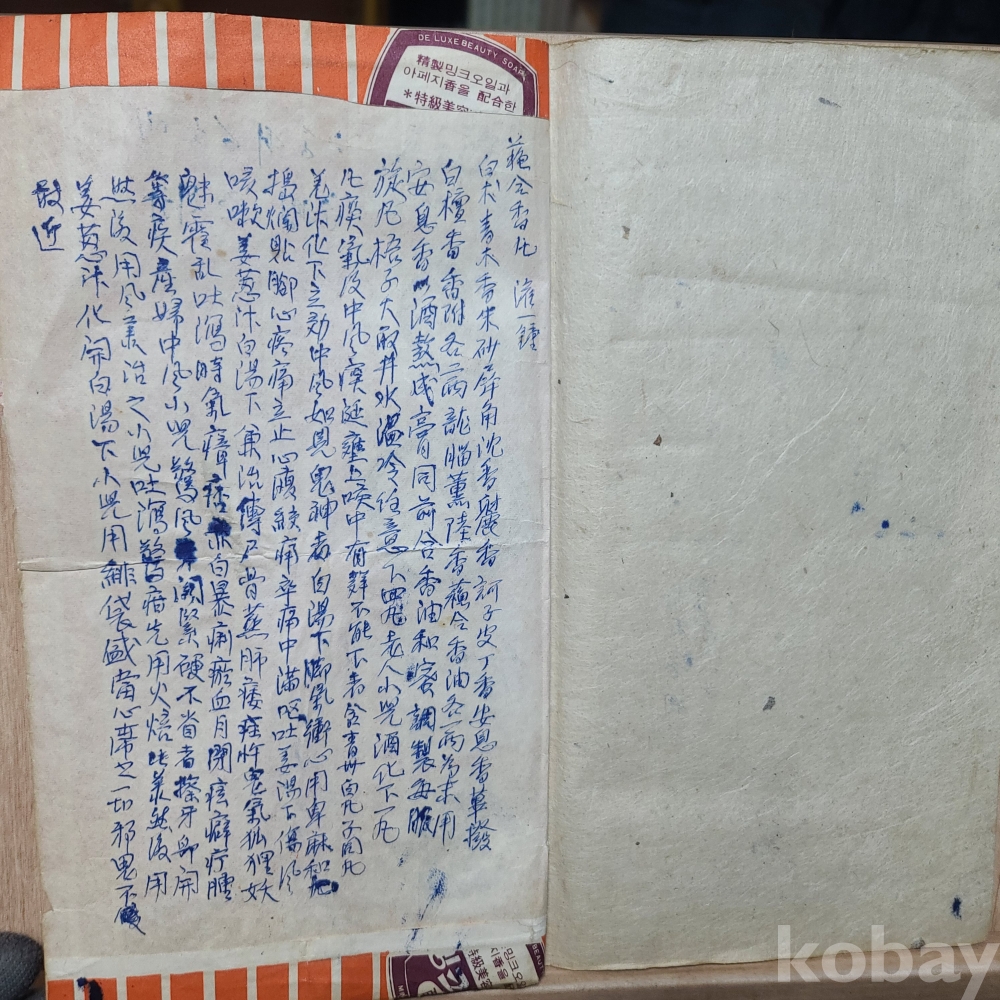 DE LUXE BEAUTY SOAP
精製밍크오일과
아페지香을 配合한
*特級美容
蘓合香凡 灌一鍾
白朮青木香朱砂犀角沈香麝香訶子皮丁香安息香蓽撥
白檀香香附各二兩龍腦薰陸香蘓合香油各一兩为末用
安息香酒熬成膏同前合香油和蜜調製每服
旋凡梧子大取井水温冷任意下四凡老人小児酒化下一凡
凡痰氣及中風痰涎壅上喉中有聲不能下者
姜汁化下立効中風如見鬼神者白湯下脚氣衝心用萆麻和凡
搗爛貼脚心疼痛立止心腹絞痛卒痛中滿呕吐姜湯下傷風
咳嗽姜葱汁白湯下兼治傳尸骨蒸肺痿疰忤鬼氣狐狸妖
魅霍乱吐瀉時氣瘴瘧赤白暴痢瘀血月閉痃癖疔腫
等疾産婦中風小児驚風牙関緊硬不省者擦牙即開
然後用風薬治之小児吐瀉驚疳先用火焙此薬然後用
姜葱汁化開白湯下小児用緋袋盛當心帯之一切邪鬼不
敢近
밍크오일
아페지香을
特級美容